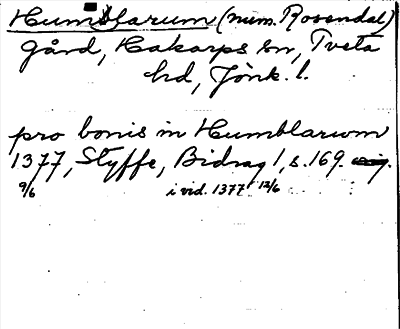 Humblarum (num. Rosendal)
gård, Hakarps sn, Tveta
hd, Jönk. l.
pro bonis in Humblarum
1377, Styffe, Bidrag 1, s. 169
9/6 i vid. 1377 12/6